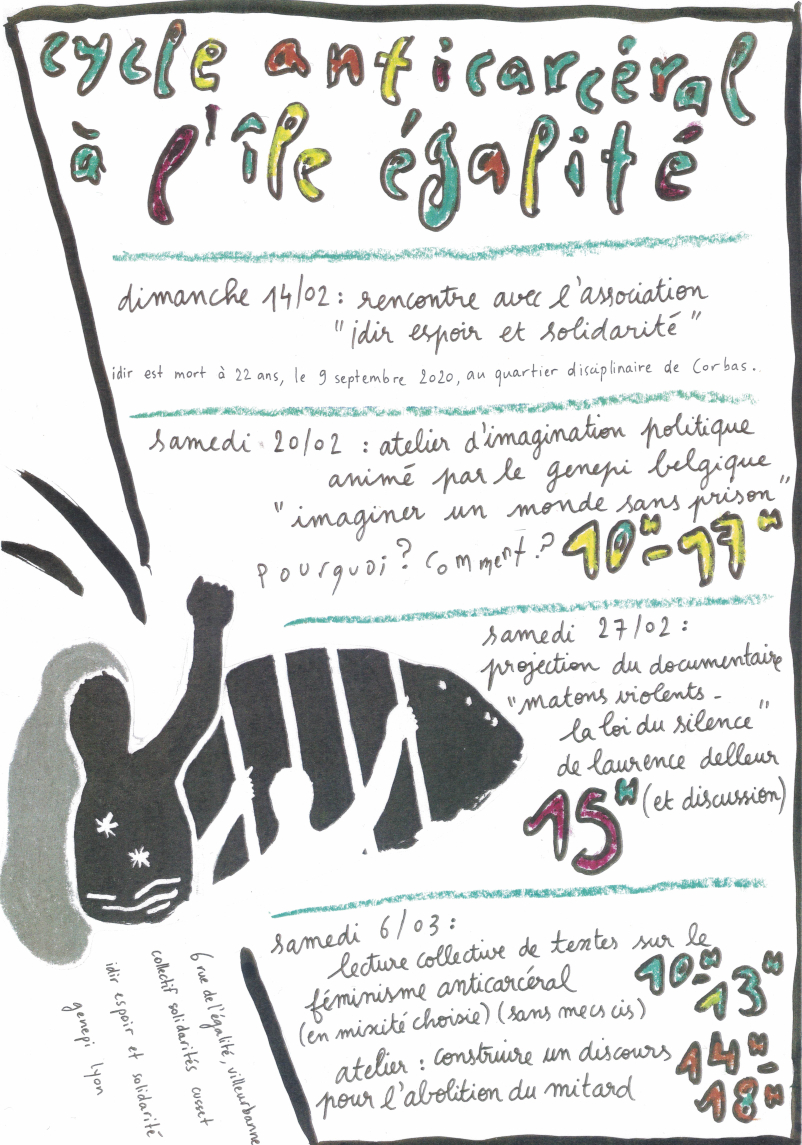 cycle anticarcéral
à l'île égalité
dimanche 14/02 : rencontre avec l'association
"idir espoir et solidarité"
idir est mort à 22 ans, le 9 septembre 2020, au quartier disciplinaire de Corbas.
samedi 20/02 : atelier d'imagination politique
animé par le genepi belgique
"imaginer un monde sans prison"
Pourquoi ? Comment ?
10H-17H
samedi 27/02 :
projection du documentaire
"matons violents -
la loi du silence"
de laurence delleur
15H (et discussion)
samedi 6/03 :
lecture collective de textes sur le
féminisme anticarcéral
(en mixité choisie) (sans mecs cis)
10H-13H
atelier : construire un discours
pour l'abolition du mitard
14H-18H
6 rue de l'égalité, villeurbanne
collectif solidarités cusset
idir espoir et solidarité
genepi lyon